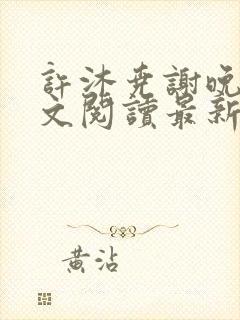 許沐堯謝晚
文閱讀最新
黃沾